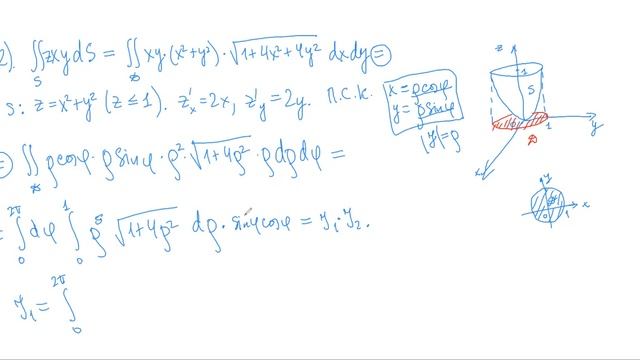 2). ∬_S zxy dS = ∬_D xy·(x²+y²)·√(1+4x²+4y²) dxdy =
S: z=x²+y² (z≤1). z'_x=2x, z'_y=2y. П.С.К.
x=ρcosφ
y=ρsinφ
|J|=ρ
= ∬_D ρcosφ·ρsinφ·ρ²·√(1+4ρ²)·ρdρdφ =
= ∫_0^{2π} dφ ∫_0^1 ρ⁵ √(1+4ρ²) dρ·sinφcosφ = J₁·J₂.
J₁ = ∫_0^{2π}
z
1
S
D
1
y
x
y
D
0
1
x